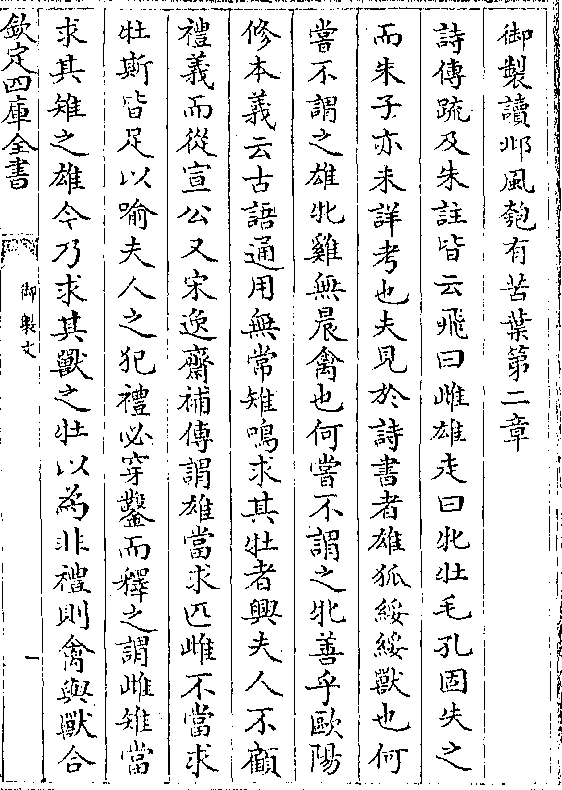 御製讀邶風匏有苦葉第二章
詩傳疏及朱註皆云飛曰雌雄走曰牝牡毛孔固失之
而朱子亦未詳考也夫見於詩書者雄狐綏綏獸也何
嘗不謂之雄牝雞無晨禽也何嘗不謂之牝善乎歐陽
修本義云古語通用無常雉鳴求其牡者興夫人不顧
禮義而從宣公又宋逸齋補傳謂雄當求匹雌不當求
牡斯皆足以喻夫人之犯禮必穿鑿而釋之謂雌雉當
求其雉之雄今乃求其獸之牡以為非禮則禽與獸合
欽定四庫全書
御製文
一